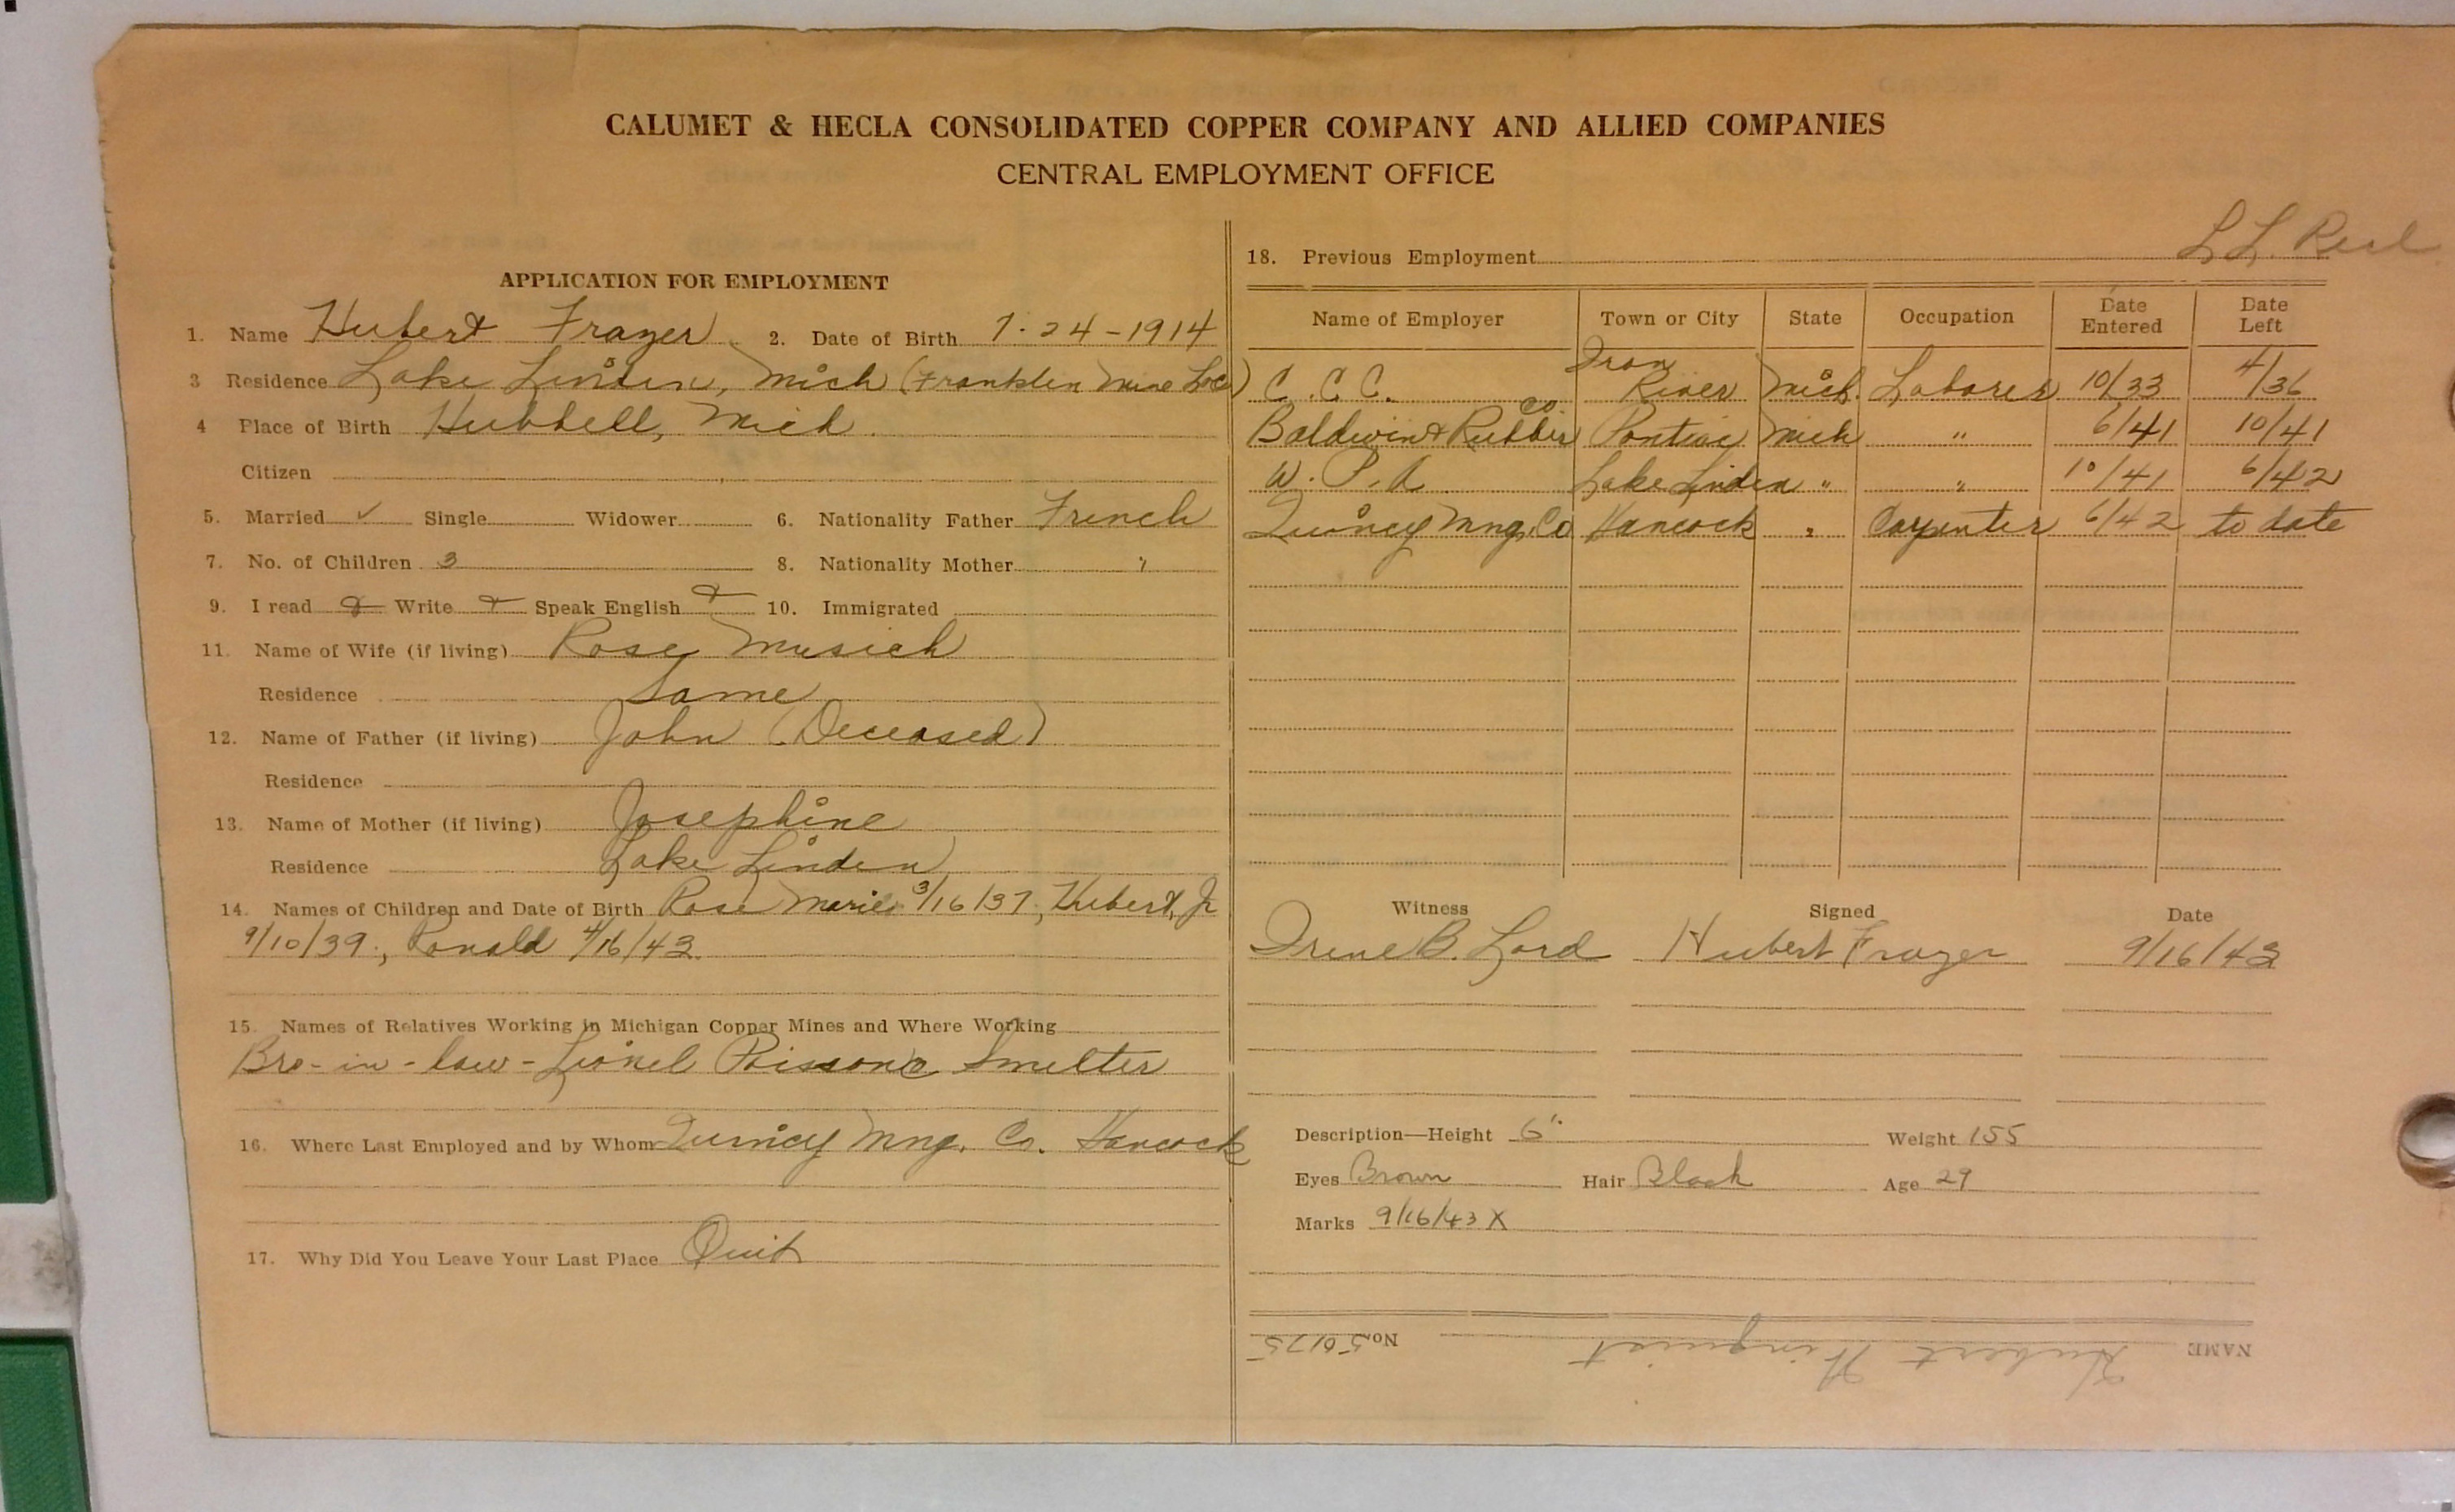 CALUMET & HECLA CONSOLIDATED COPPER COMPANY AND ALLIED COMPANIES
CENTRAL EMPLOYMENT OFFICE
APPLICATION FOR EMPLOYMENT
1. Name Hubert Frazer 2. Date of Birth 7-24-1914
3 Residence Lake Linden, Mich (Franklin Mine Loc)
4 Place of Birth Hubbell, Mich.
Citizen
5. Married ✓ Single Widower 6. Nationality Father French
7. No. of Children 3 8. Nationality Mother "
9. I read Write Speak English 10. Immigrated
11. Name of Wife (if living) Rose Musich
Residence Same
12. Name of Father (if living) John (Deceased)
Residence
13. Name of Mother (if living) Josephine
Residence Lake Linden
14. Names of Children and Date of Birth Rose Marie 3/16/37, Hubert, Jr
9/10/39, Ronald 4/16/43.
15. Names of Relatives Working in Michigan Copper Mines and Where Working
Bro-in-law - Lionel Smelter
16. Where Last Employed and by Whom Quincy Mng. Co. Hancock
17. Why Did You Leave Your Last Place Quit
18. Previous Employment L.L. Recl
Name of Employer Town or City State Occupation Date Entered Date Left
C.C.C. Iron River Mich. Laborer 10/33 4/36
Baldwin Rubber Co. Pontiac Mich " 6/41 10/41
W.P.A Lake Linden " " 10/41 6/42
Quincy Mng. Co Hancock " Carpenter 6/42 to date
Witness Signed Date
Irene B. Lord Hubert Frazer 9/16/43
Description—Height 6' Weight 155
Eyes Brown Hair Black Age 29
Marks 9/16/43 X
NAME Hubert No. 50175